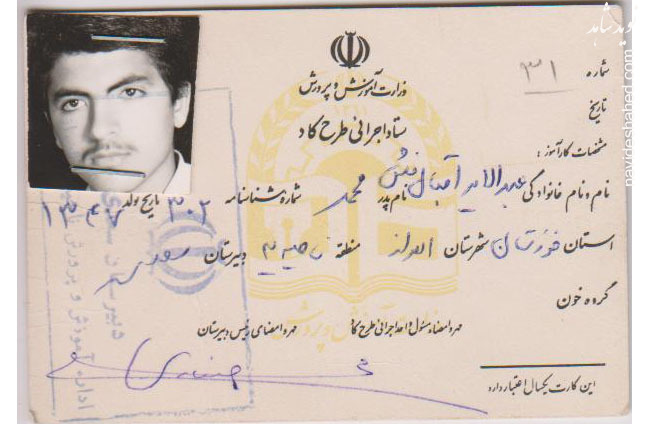 نوید شاهد
navideshahed.com
وزارت آموزش و پرورش
ستاد اجرائی طرح کاد
شماره ۳۱
تاریخ
مشخصات کارآموز:
نام و نام خانوادگی عبدالامیر نام پدر محمد شماره شناسنامه ۳۰۲ تاریخ تولد
استان خوزستان شهرستان اهواز منطقه ناحیه ۳ دبیرستان
گروه خون
مهر و امضاء مسئول واحد اجرائی طرح کاد مهر و امضای رئیس دبیرستان
این کارت یکسال اعتبار دارد
اداره آموزش و پرورش